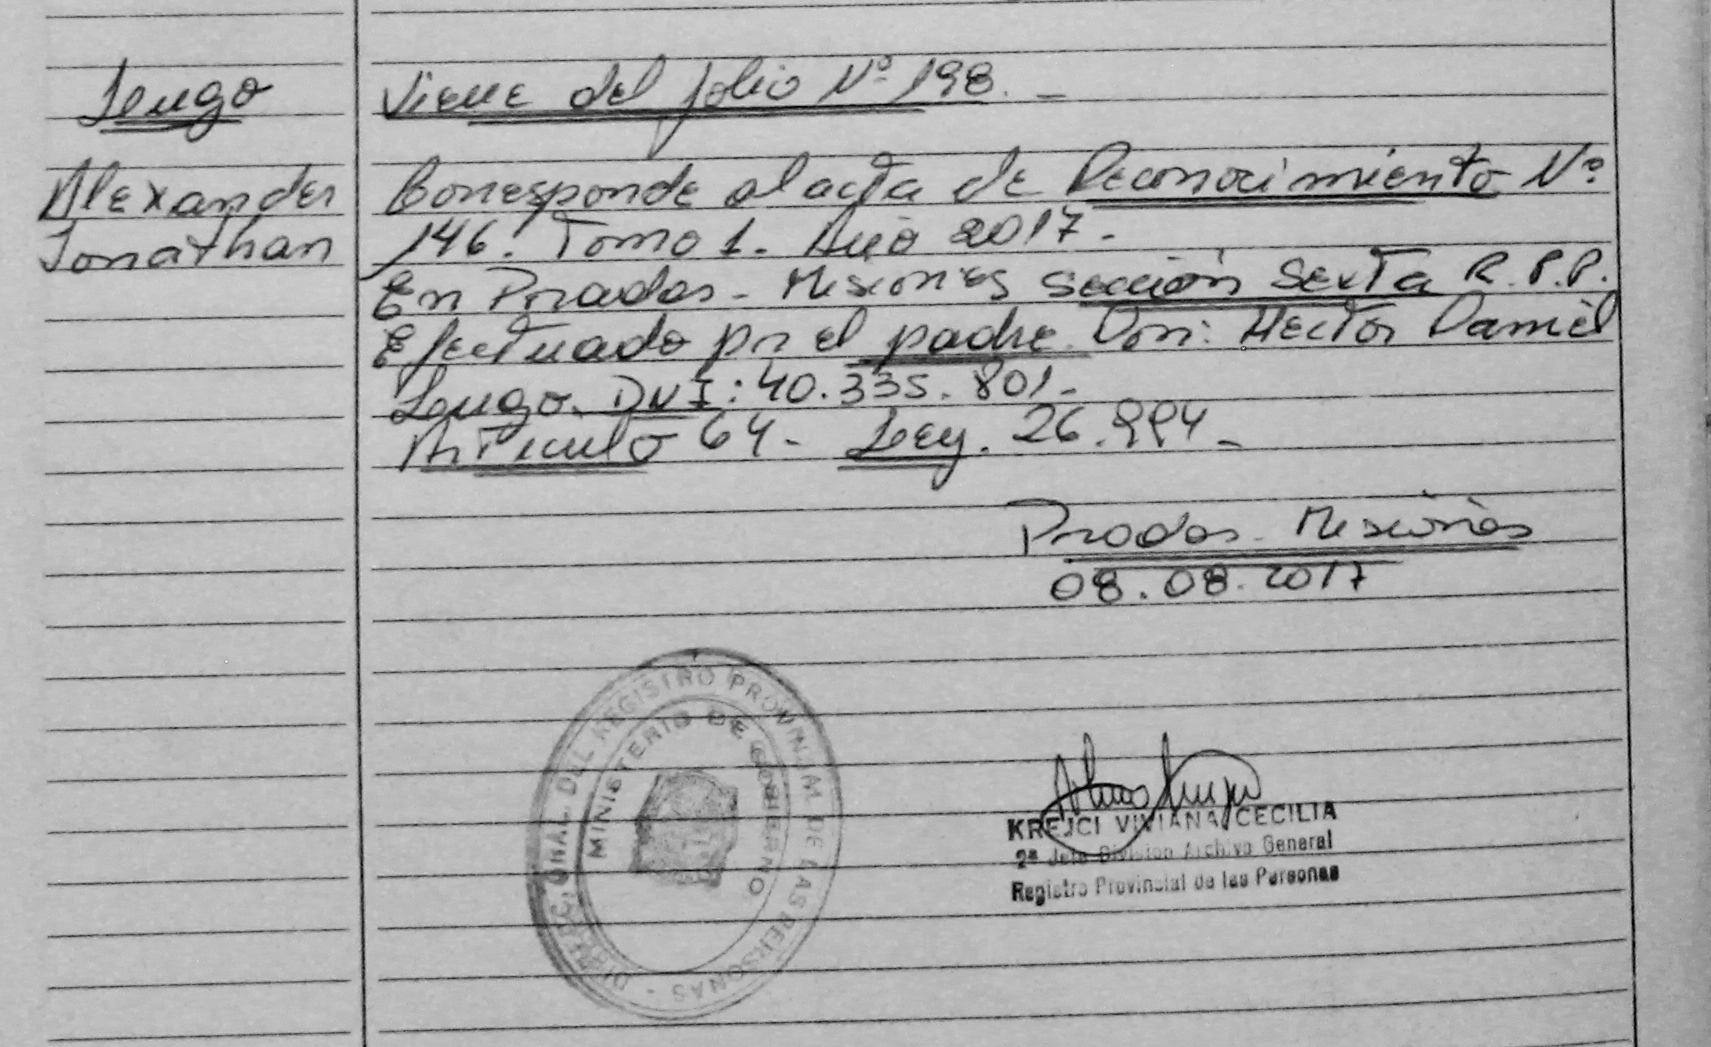 Lugo
Viene del folio Nº 198. -
Alexander
Jonathan
Corresponde al acta de Reconocimiento Nº
146. Tomo 1. Año 2017.
En Posadas - Misiones Sección Sexta R.P.P.
Efectuado por el padre Don: Hector Daniel
Lugo. DNI: 40.335.801-
Articulo 64 - Ley. 26.994 -
Posadas - Misiones
08.08.2017
DIRECCIÓN GRAL. DEL REGISTRO PROVINCIAL DE LAS PERSONAS -
MINISTERIO DE GOBIERNO
KREJCI VIVIANA CECILIA
2ª Jefa División Archivo General
Registro Provincial de las Personas